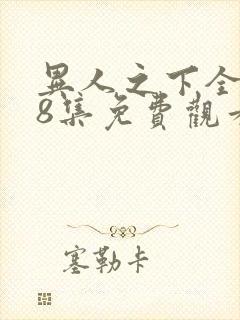 異人之下全
8集免費觀
塞勒卡